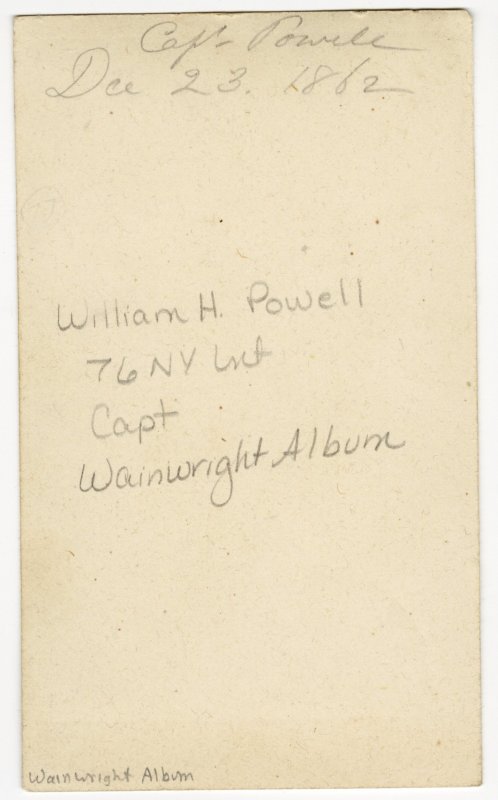 Capt Powell
Dec 23. 1862
William H. Powell
76 NY Inf
Capt
Wainwright Album
Wainwright Album